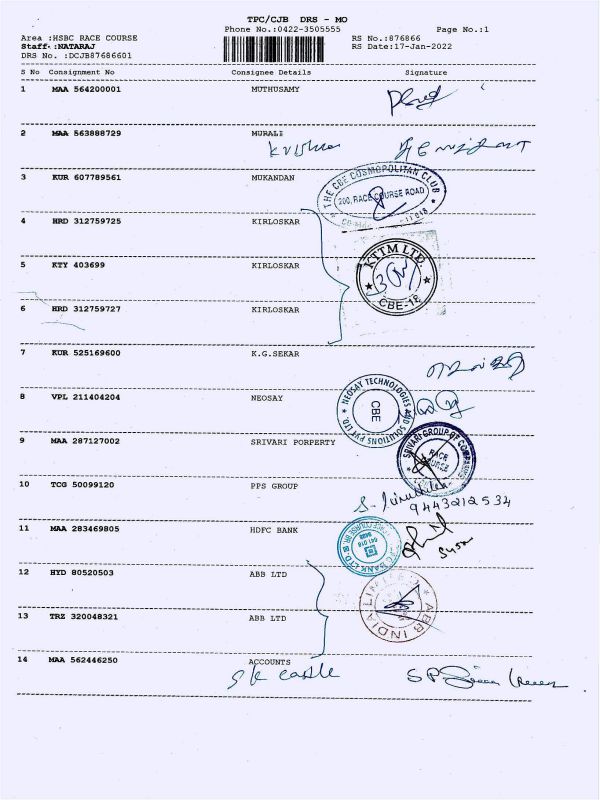 TPC/CJB DRS - MO
Phone No.:0422-3505555 Page No.:1
Area :HSBC RACE COURSE RS No.:876866
Staff :NATARAJ RS Date:17-Jan-2022
DRS No. :DCJB87686601
S No Consignment No Consignee Details Signature
1 MAA 564200001 MUTHUSAMY
2 MAA 563888729 MURALI
3 KUR 607789561 MUKANDAN
THE CBE COSMOPOLITAN CLUB
200, RACE COURSE ROAD
4 HRD 312759725 KIRLOSKAR
5 KTY 403699 KIRLOSKAR
KTTM LTD.
CBE-18
6 HRD 312759727 KIRLOSKAR
7 KUR 525169600 K.G.SEKAR
8 VPL 211404204 NEOSAY
NEOSAY TECHNOLOGIES AND SOLUTIONS PVT LTD
CBE
9 MAA 287127002 SRIVARI PORPERTY
SRIVARI GROUP OF COMPANIES
RACE COURSE
10 TCG 50099120 PPS GROUP
9443212534
11 MAA 283469805 HDFC BANK
BANK LTD.
12 HYD 80520503 ABB LTD
13 TRZ 320048321 ABB LTD
ABB INDIA LIMITED
14 MAA 562446250 ACCOUNTS
S K castle